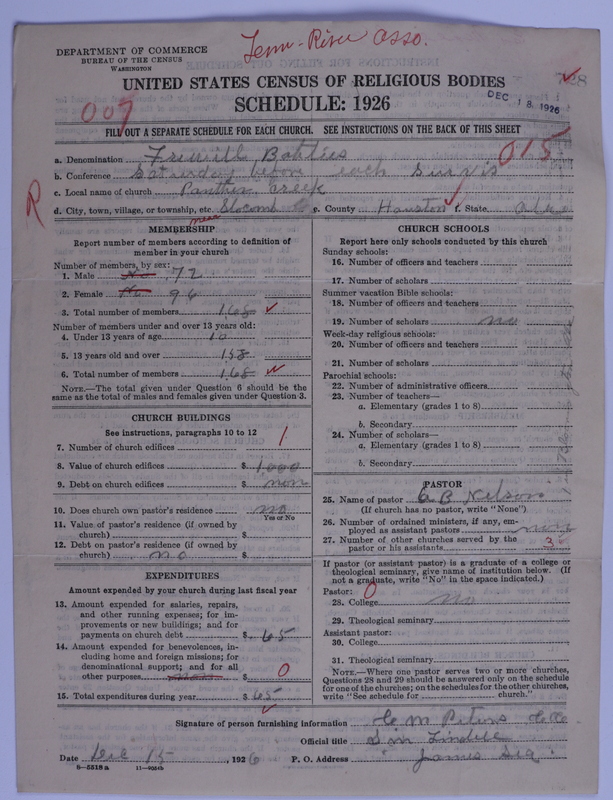 Tenn-River Asso.
DEPARTMENT OF COMMERCE
BUREAU OF THE CENSUS
WASHINGTON
UNITED STATES CENSUS OF RELIGIOUS BODIES
728
SCHEDULE: 1926
DEC 18 1926
007
FILL OUT A SEPARATE SCHEDULE FOR EACH CHURCH. SEE INSTRUCTIONS ON THE BACK OF THIS SHEET
015
a. Denomination Freewill Babties
b. Conference Saturday before each Survis
c. Local name of church Panther Creek
R
d. City, town, village, or township, etc. near Slocomb e. County Houston f. State
MEMBERSHIP
Report number of members according to definition of member in your church
Number of members, by sex:
1. Male No 72
2. Female 96
3. Total number of members 168
Number of members under and over 13 years old:
4. Under 13 years of age 10
5. 13 years old and over 158
6. Total number of members 168
NOTE.—The total given under Question 6 should be the same as the total of males and females given under Question 3.
CHURCH BUILDINGS
See instructions, paragraphs 10 to 12
7. Number of church edifices 1
8. Value of church edifices $ 1,000
9. Debt on church edifices $ non
10. Does church own pastor's residence no
Yes or No
11. Value of pastor's residence (if owned by church) $
12. Debt on pastor's residence (if owned by church) no $
EXPENDITURES
Amount expended by your church during last fiscal year
13. Amount expended for salaries, repairs, and other running expenses; for improvements or new buildings; and for payments on church debt $ 65
14. Amount expended for benevolences, including home and foreign missions; for denominational support; and for all other purposes non $ 0
15. Total expenditures during year $ 65
CHURCH SCHOOLS
Report here only schools conducted by this church
Sunday schools:
16. Number of officers and teachers
17. Number of scholars
Summer vacation Bible schools:
18. Number of officers and teachers
19. Number of scholars no
Week-day religious schools:
20. Number of officers and teachers
21. Number of scholars
Parochial schools:
22. Number of administrative officers
23. Number of teachers—
a. Elementary (grades 1 to 8)
b. Secondary
24. Number of scholars—
a. Elementary (grades 1 to 8)
b. Secondary
PASTOR
25. Name of pastor A B Nelson
(If church has no pastor, write "None")
26. Number of ordained ministers, if any, employed as assistant pastors
27. Number of other churches served by the pastor or his assistants 3
If pastor (or assistant pastor) is a graduate of a college or theological seminary, give name of institution below. (If not a graduate, write "No" in the space indicated.)
Pastor: 0
28. College no
29. Theological seminary
Assistant pastor:
30. College
31. Theological seminary
NOTE.—Where one pastor serves two or more churches, Questions 28 and 29 should be answered only on the schedule for one of the churches; on the schedules for the other churches, write "See schedule for church."
Signature of person furnishing information M Peters
Official title
Date Dec 15, 1926 P. O. Address James
8—5518a 11—9064b